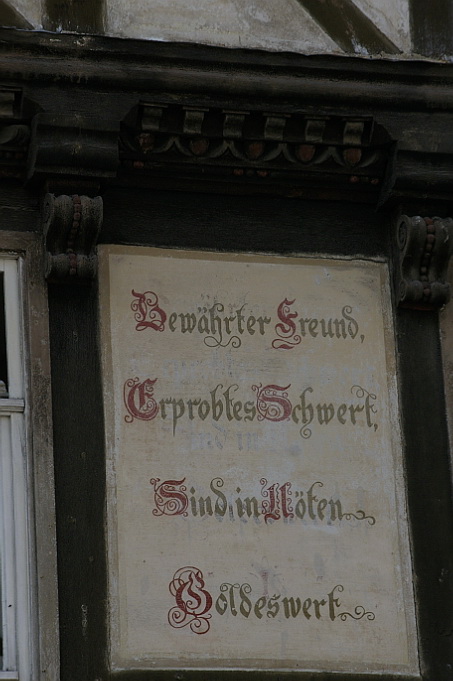 Bewährter Freund,
Erprobtes Schwert,
Sind in Nöten
Goldeswert